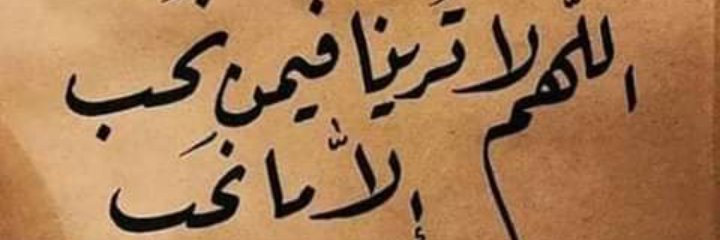 اللّهم لا تَرينا فيمن نحب
إلّا ما نحَب